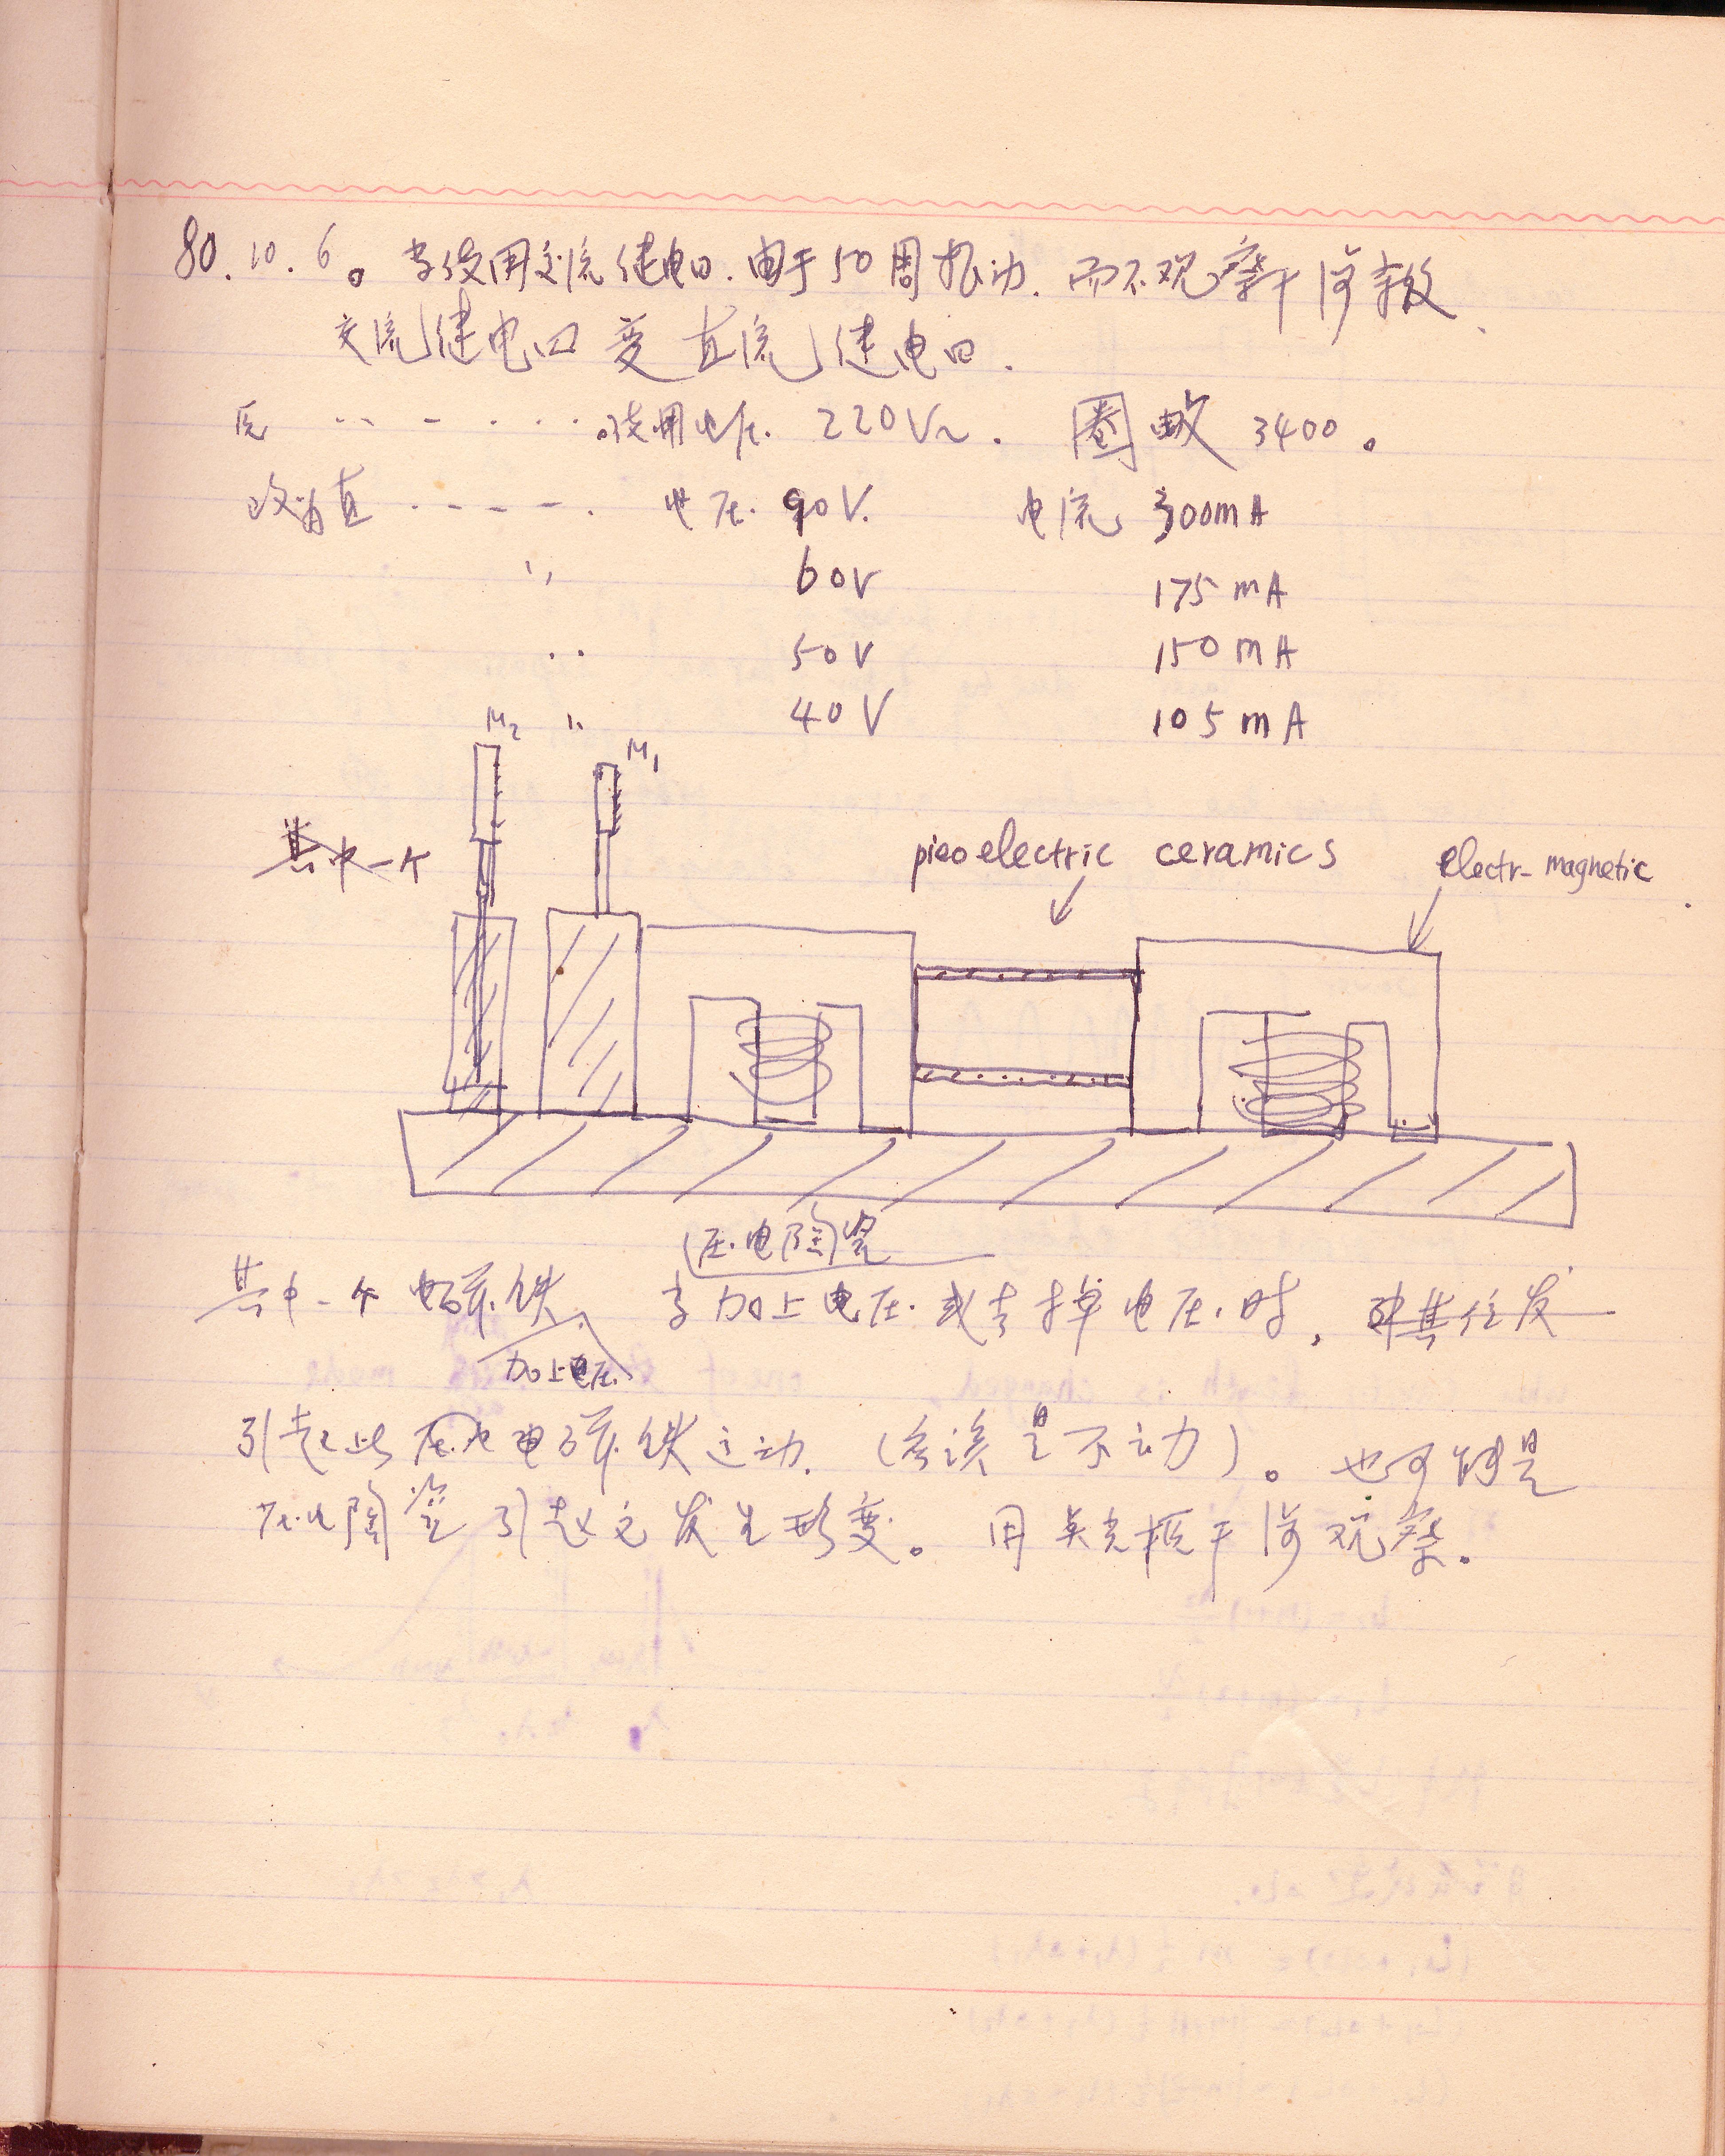 80.10.6。当使用交流继电口.由于50周振动.而不观察干涉条纹.
交流继电口变直流继电口.
原 ‥ - ‥‥使用电压.220V~.圈数3400。
改为直 - - - - . 电压.90V. 电流 300mA
〃 60V 175mA
〃 50V 150mA
M2 〃 40V 105mA
M1
其中一个
piezoelectric ceramics
electr-magnetic
压电陶瓷
其中一个电磁铁 当加上电压或去掉电压时,
加上电压
引起此 电磁铁运动.(应该是不动)。也可能是
压电陶瓷引起它发生形变。用 干涉观察。